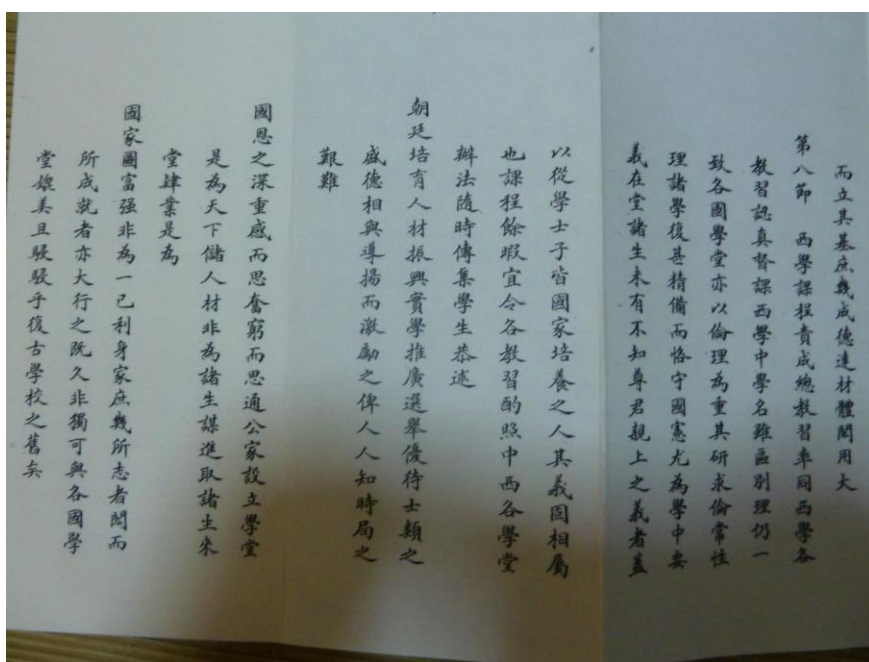 而立其基庶幾成德達材體閎用大
第八節 西學課程責成總教習率同西學各
教習認真督課西學中學名雖區別理仍一
致各國學堂亦以倫理為重其研求倫常性
理諸學復甚精備而恪守國憲尤為學中要
義在堂諸生未有不知尊君親上之義者蓋
以從學士子皆國家培養之人其義固相屬
也課程餘暇宜令各教習酌照中西各學堂
辦法隨時傳集學生恭述
朝廷培育人材振興實學推廣選舉優待士類之
盛德相與導揚而激勵之俾人人知時局之
艱難
國恩之深重感而思奮窮而思通公家設立學堂
是為天下儲人材非為諸生謀進取諸生來
堂肄業是為
國家圖富强非為一己利身家庶幾所志者閎而
所成就者亦大行之既久非獨可與各國學
堂媲美且駸駸乎復古學校之舊矣